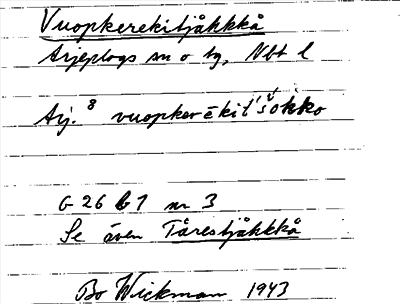 Vuopkerekitjåhkkå
Arjeplogs sn o tg, Nbt l
Arj. 8 vuopkerēkit́šokko
G 26 b 1 nr 3
Se även Tårestjåhkkå
Bo Wickman 1943